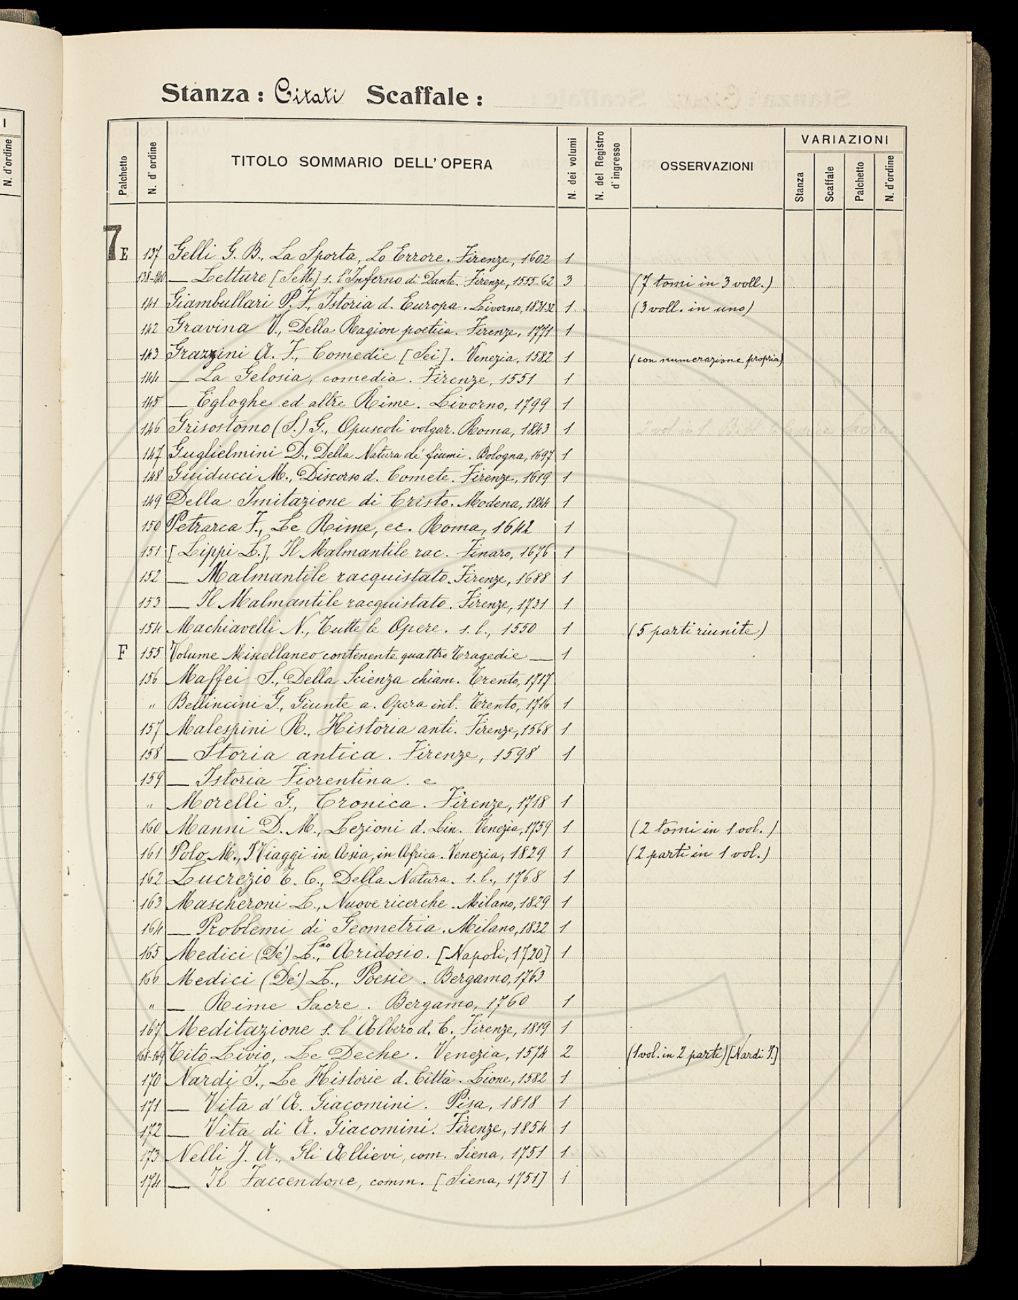 I
N. d'ordine
Stanza: Citati Scaffale:
Palchetto N. d'ordine TITOLO SOMMARIO DELL'OPERA N. dei volumi N. del Registro d'ingresso OSSERVAZIONI VARIAZIONI
Stanza Scaffale Palchetto N. d'ordine
7E 137 Gelli G. B., La Sporta, Lo Errore. Firenze, 1602 1
138-140 — Letture [Sette] s. l'Inferno di Dante. Firenze, 1555-62 3 (7 tomi in 3 voll.)
141 Giambullari P. F., Istoria d. Europa. Livorno, 1831-32 1 (3 voll. in uno)
142 Gravina V., Della Ragion poetica. Firenze, 1771 1
143 Grazzini A. F., Comedie [Sei]. Venezia, 1582 1 (con numerazione propria)
144 — La Gelosia, comedia. Firenze, 1551 1
145 — Egloghe ed altre Rime. Livorno, 1799 1
146 Grisostomo (S.) G., Opuscoli volgar. Roma, 1843 1
147 Guglielmini D., Della Natura de' fiumi. Bologna, 1697 1
148 Guiducci M., Discorso d. Comete. Firenze, 1619 1
149 Della Imitazione di Cristo. Modena, 1844 1
150 Petrarca F., Le Rime, ec. Roma, 1642 1
151 [Lippi L.], Il Malmantile rac. Finaro, 1676 1
152 — Malmantile racquistato. Firenze, 1688 1
153 — Il Malmantile racquistato. Firenze, 1731 1
154 Machiavelli N., Tutte le Opere. s. l., 1550 1 (5 parti riunite)
F 155 Volume Miscellaneo contenente quattro Tragedie — 1
156 Maffei S., Della Scienza chiam. Trento, 1717
" Bellincini G., Giunte a. Opera int. Trento, 1716 1
157 Malespini R., Historia anti. Firenze, 1568 1
158 — Storia antica. Firenze, 1598 1
159 — Istoria Fiorentina. e
" Morelli G., Cronica. Firenze, 1718 1
160 Manni D. M., Lezioni d. Lin. Venezia, 1759 1 (2 tomi in 1 vol.)
161 Polo M., I Viaggi in Asia, in Africa. Venezia, 1829 1 (2 parti in 1 vol.)
162 Lucrezio T. C., Della Natura. s. l., 1768 1
163 Mascheroni L., Nuove ricerche. Milano, 1829 1
164 — Problemi di Geometria. Milano, 1832 1
165 Medici (De') L.no, Aridosio. [Napoli, 1720] 1
166 Medici (De') L., Poesie. Bergamo, 1763
" — Rime Sacre. Bergamo, 1760 1
167 Meditazione s. l'Albero d. C. Firenze, 1819 1
168-169 Tito Livio, Le Deche. Venezia, 1574 2 (1 vol. in 2 parti) [Nardi J.]
170 Nardi J., Le Historie d. Città. Lione, 1582 1
171 — Vita d'A. Giacomini. Pisa, 1818 1
172 — Vita di A. Giacomini. Firenze, 1854 1
173 Nelli J. A., Gli Allievi, com. Siena, 1751 1
174 — Il Faccendone, comm. [Siena, 1751] 1